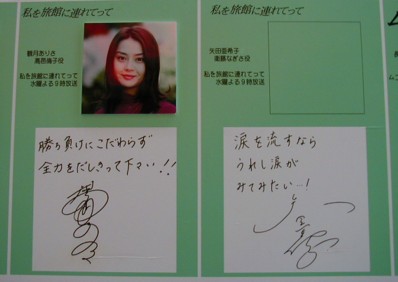 私を旅館に連れてって
観月ありさ
高恩倫子役
私を旅館に連れてって
水曜よる9時放送
勝ち負けにこだわらず
全力をだしきって下さい!!
私を旅館に連れてって
矢田亜希子
楽願なぎさ役
私を旅館に連れてって
水曜よる9時放送
涙を流すなら
うれし涙が
みてみたい…!